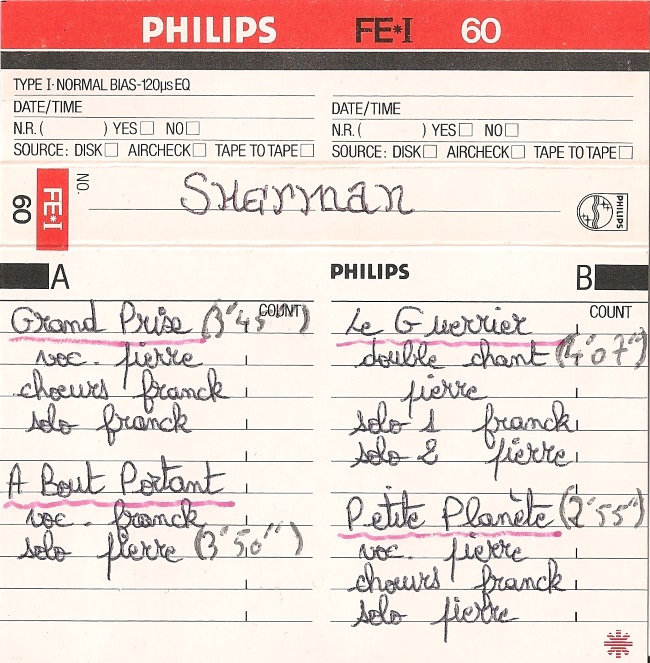 PHILIPS FE*I 60
TYPE I·NORMAL BIAS-120µs EQ
DATE/TIME
N.R. ( ) YES□ NO□
SOURCE: DISK□ AIRCHECK□ TAPE TO TAPE□
DATE/TIME
N.R. ( ) YES□ NO□
SOURCE: DISK□ AIRCHECK□ TAPE TO TAPE□
60 FE*I NO.
Sherman
PHILIPS
A
COUNT
Grand Prise (3'45")
voc. pierre
choeurs franck
solo franck
A Bout Portant
voc. franck
solo pierre (3'50'')
PHILIPS B
COUNT
Le Guerrier
double chant (4'07")
pierre
solo 1 franck
solo 2 pierre
Petite Planète (2'55")
voc. pierre
choeurs franck
solo pierre